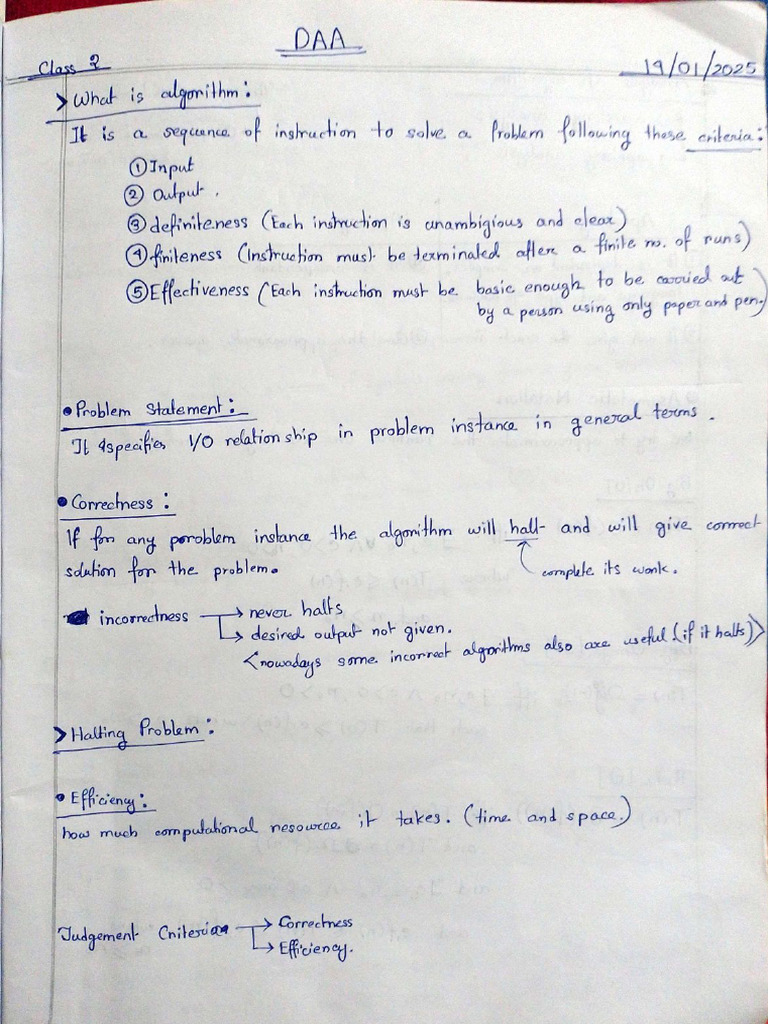 DAA
Class 2
19/01/2025
> What is algorithm:
It is a sequence of instruction to solve a Problem following these criteria:
① Input
② Output.
③ definiteness (Each instruction is unambigious and clear)
④ finiteness (Instruction must be terminated after a finite no. of runs)
⑤ Effectiveness (Each instruction must be basic enough to be carried out
by a person using only paper and pen.)
• Problem Statement:
It specifies I/O relationship in problem instance in general terms.
• Correctness:
If for any poroblem instance the algorithm will halt and will give correct
solution for the problem.
complete its work.
incorrectness → never halts
→ desired output not given.
<nowadays some incorrect algorithms also are useful (if it halts)>
> Halting Problem:
• Efficiency:
how much computational resource it takes. (time and space.)
Judgement Criteria → Correctness
→ Efficiency.